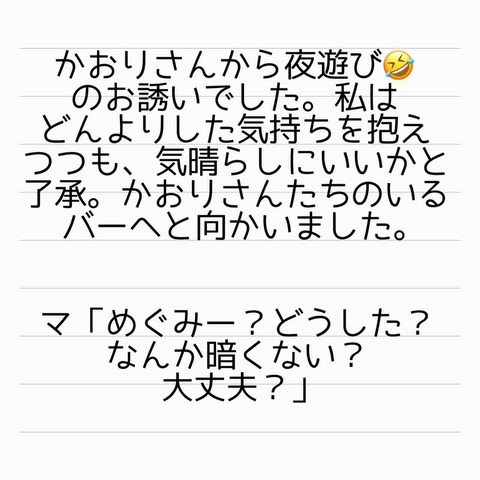 かおりさんから夜遊び🤣
のお誘いでした。私は
どんよりした気持ちを抱え
つつも、気晴らしにいいかと
了承。かおりさんたちのいる
バーへと向かいました。
マ「めぐみー？どうした？
なんか暗くない？
大丈夫？」